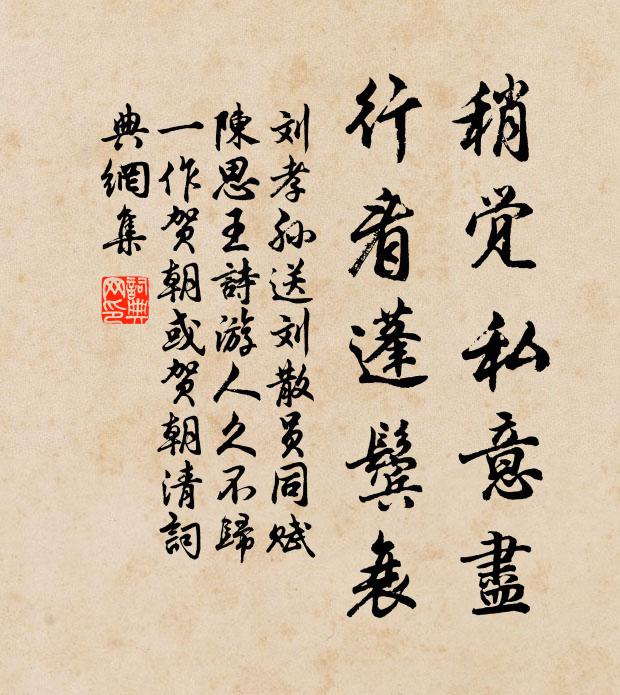 稍觉私意盡
行看蓬鬓衰
刘孝孙送刘散员同赋
陳思王詩游人久不歸
一作贺朝或贺朝清詞
典網集
詞典网印